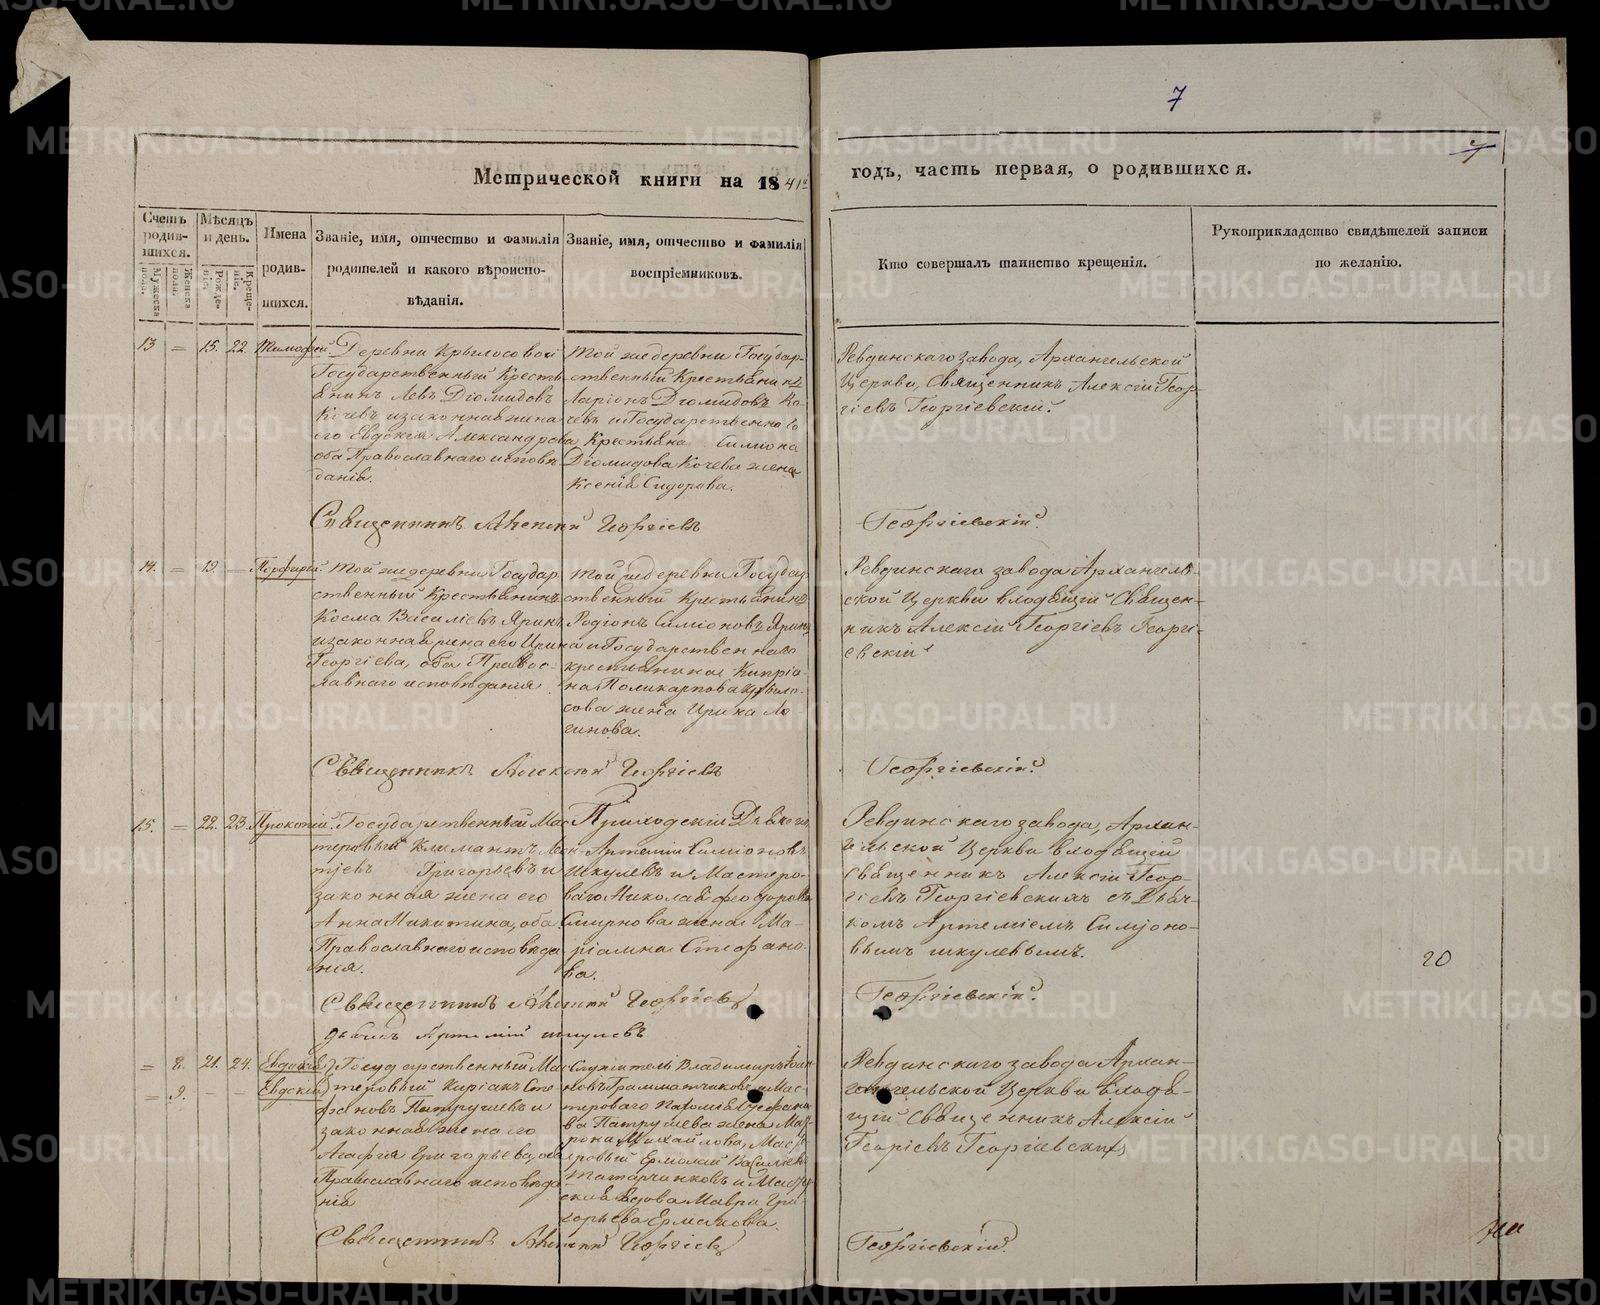 7
7
Метрической книги на 1841й
годъ, часть первая, о родившихся.
Счетъ родив-шихся.
Мужеска пола.
Женска пола.
Мѣсяцъ и день.
Рожде-нія.
Креще-нія.
Имена родив-шихся.
Званіе, имя, отчество и фамилія
родителей и какого вѣроиспо-
вѣданія.
Званіе, имя, отчество и фамилія
воспріемниковъ.
Кто совершалъ таинство крещенія.
Рукоприкладство свидѣтелей записи
по желанію.
13 = 15. 22 Тимофей
Деревни Крылосовой
Государственный Кресть-
янинъ Левъ Діомидовъ
Кочевъ и законная жена
его Евдокія Александрова
оба Православнаго исповѣ
данія.
Той же деревни Государ-
ственный Крестьянинъ
Ларіонъ Діомидовъ Ко-
чевъ и Государственнаго
Крестьяна Симіона
Діомидова Кочева жена
Ксенія Сидорова.
Ревдинскаго завода, Архангельской
Церкви, Священникъ Алексій Геор-
гіевъ Георгіевскій.
Священникъ Алексій Георгіевъ
Георгіевскій.
14. = 19. — Порфирій
Той же деревни Государ
ственный Крестьянинъ
Косма Василіевъ Яринъ
и законная жена его Ирина
Георгіева, оба Правос-
лавнаго исповѣданія.
Той же деревни Государ
ственный Крестьянинъ
Родіонъ Симіоновъ Яринъ
и Государственнаго
крестьянина Кипріа-
на Поликарпова Крыло-
сова жена Ирина Ло-
гинова.
Ревдинскаго завода Архангель-
ской Церкви владѣющій Священ-
никъ Алексій Георгіевъ Георгі-
евскій
Священникъ Алексій Георгіевъ
Георгіевскій.
15. = 22. 23. Прокопій.
Государственный Мас
теровый Климантъ
Григорьевъ и
законная жена его
Анна Никитина, оба
Православнаго исповѣда
нія.
Приходскій Дьячекъ
Артемій Симіоновъ
Шкулевъ и Мастеро-
ваго Николая Феодорова
Смирнова жена Ма-
ріамна Стефано-
ва.
Ревдинскаго завода, Архан-
гельской Церкви владѣющій
Священникъ Алексій Геор-
гіевъ Георгіевскихъ съ Дьяч-
комъ Артеміемъ Симіоно-
вымъ Шкулевымъ.
20
Священникъ Алексій Георгіевъ
Георгіевскій.
Дьячекъ Артемій Шкулевъ
= 8. 21. 24. Евдокія
= 9. — — Евдокія
Государственный Мас
теровый Киріакъ Сте
фановъ Патрушевъ и
законная жена его
Агафія Григорьева, оба
Православнаго исповѣда
нія
Служитель Владимиръ
Грамматчиковъ и Мас
тероваго
ва Патрушева жена Мат-
рона Михайлова, Мас
теровый Ермолай Васильевъ
Татарчинковъ и Масте
ская вдова Мавра Гри-
горьева Ермакова.
Ревдинскаго завода Архан-
гельской Церкви владѣ-
щій Священникъ Алексій
Георгіевъ Георгіевскихъ
Священникъ Алексій Георгіевъ
Георгіевскій.